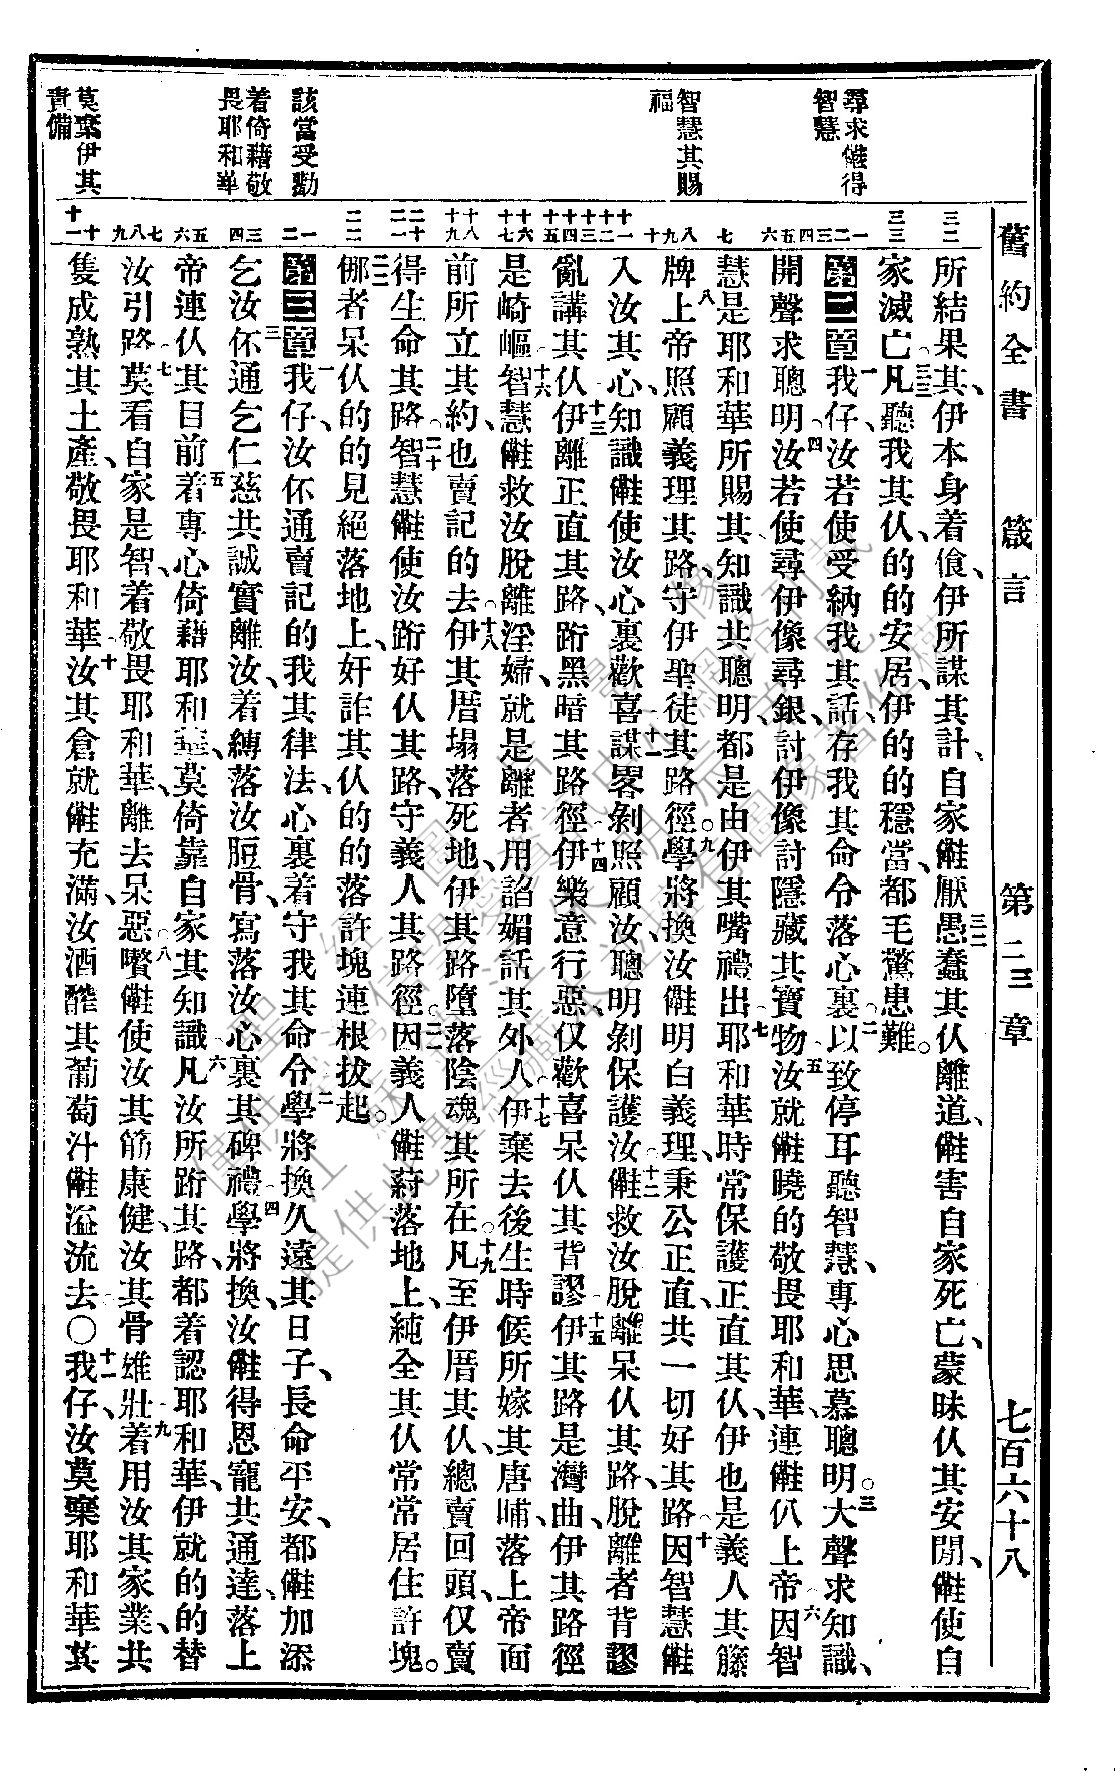 舊約全書 箴言 第二三章 七百六十八
尋求𣍐得
智慧
智慧其賜
福
該當受勸
着倚藉敬
畏耶和華
莫棄伊其
責備
所結果其、伊本身着飡、伊所謀其計、自家𠆧厭、三二愚蠢其仈離道、𠆧害自家死亡、蒙昧仈其安閒、𠆧使自
家滅亡、三三凡聽我其仈的的安居、伊的的穩當、都毛驚患難。
第二章 一我仔、汝若使受納我其話、存我其命令落心裏、二以致停耳聽智慧、專心思慕聰明、三大聲求知識、
開聲求聰明、四汝若使尋伊像尋銀、討伊像討隱藏其寶物、五汝就𠆧曉的敬畏耶和華、連𠆧仈上帝、六因智
慧是耶和華所賜其、知識共聰明、都是由伊其嘴禮出、七耶和華時常保護正直其仈、伊也是義人其籐
牌、八上帝照顧義理其路、守伊聖徒其路徑。九學將換汝𠆧明白義理、秉公正直、共一切好其路、十因智慧𠆧
入汝其心、知識𠆧使汝心裏歡喜、十一謀畧剝照顧汝、聰明剝保護汝、十二𠆧救汝脫離呆仈其路、脫離者背謬
亂講其仈、十三伊離正直其路、跨黑暗其路徑、十四伊樂意行惡、仅歡喜呆仈其背謬、十五伊其路是灣曲、伊其路徑
是崎嶇、十六智慧𠆧救汝脫離淫婦、就是離者用諂媚話其外人、十七伊棄去後生時候所嫁其唐哺、落上帝面
前所立其約、也賣記的去、十八伊其厝塌落死地、伊其路墮落陰魂其所在、十九凡至伊厝其仈、總賣回頭、仅賣
得生命其路、二十智慧𠆧使汝跨好仈其路、守義人其路徑。二一因義人𠆧𦵴落地上、純全其仈常常居住許塊。
二二㑚者呆仈的的見絕落地上、奸詐其仈的的落許塊連根拔起。
第三章 一我仔、汝伓通賣記的我其律法、心裏着守我其命令、二學將換久遠其日子、長命平安、都𠆧加添
乞汝、三伓通乞仁慈共誠實離汝、着縛落汝脰骨、寫落汝心裏其碑禮、四學將換、汝𠆧得恩寵共通達、落上
帝連仈其目前、五着專心倚藉耶和華、莫倚靠自家其知識、六凡汝所跨其路、都着認耶和華、伊就的的替
汝引路、七莫看自家是智、着敬畏耶和華、離去呆惡、八嚽𠆧使汝其筋康健、汝其骨雄壯、九着用汝其家業、共
隻成熟其土產、敬畏耶和華、十汝其倉就𠆧充滿、汝酒醡其葡萄汁𠆧溢流去○十一我仔、汝莫棄耶和華其